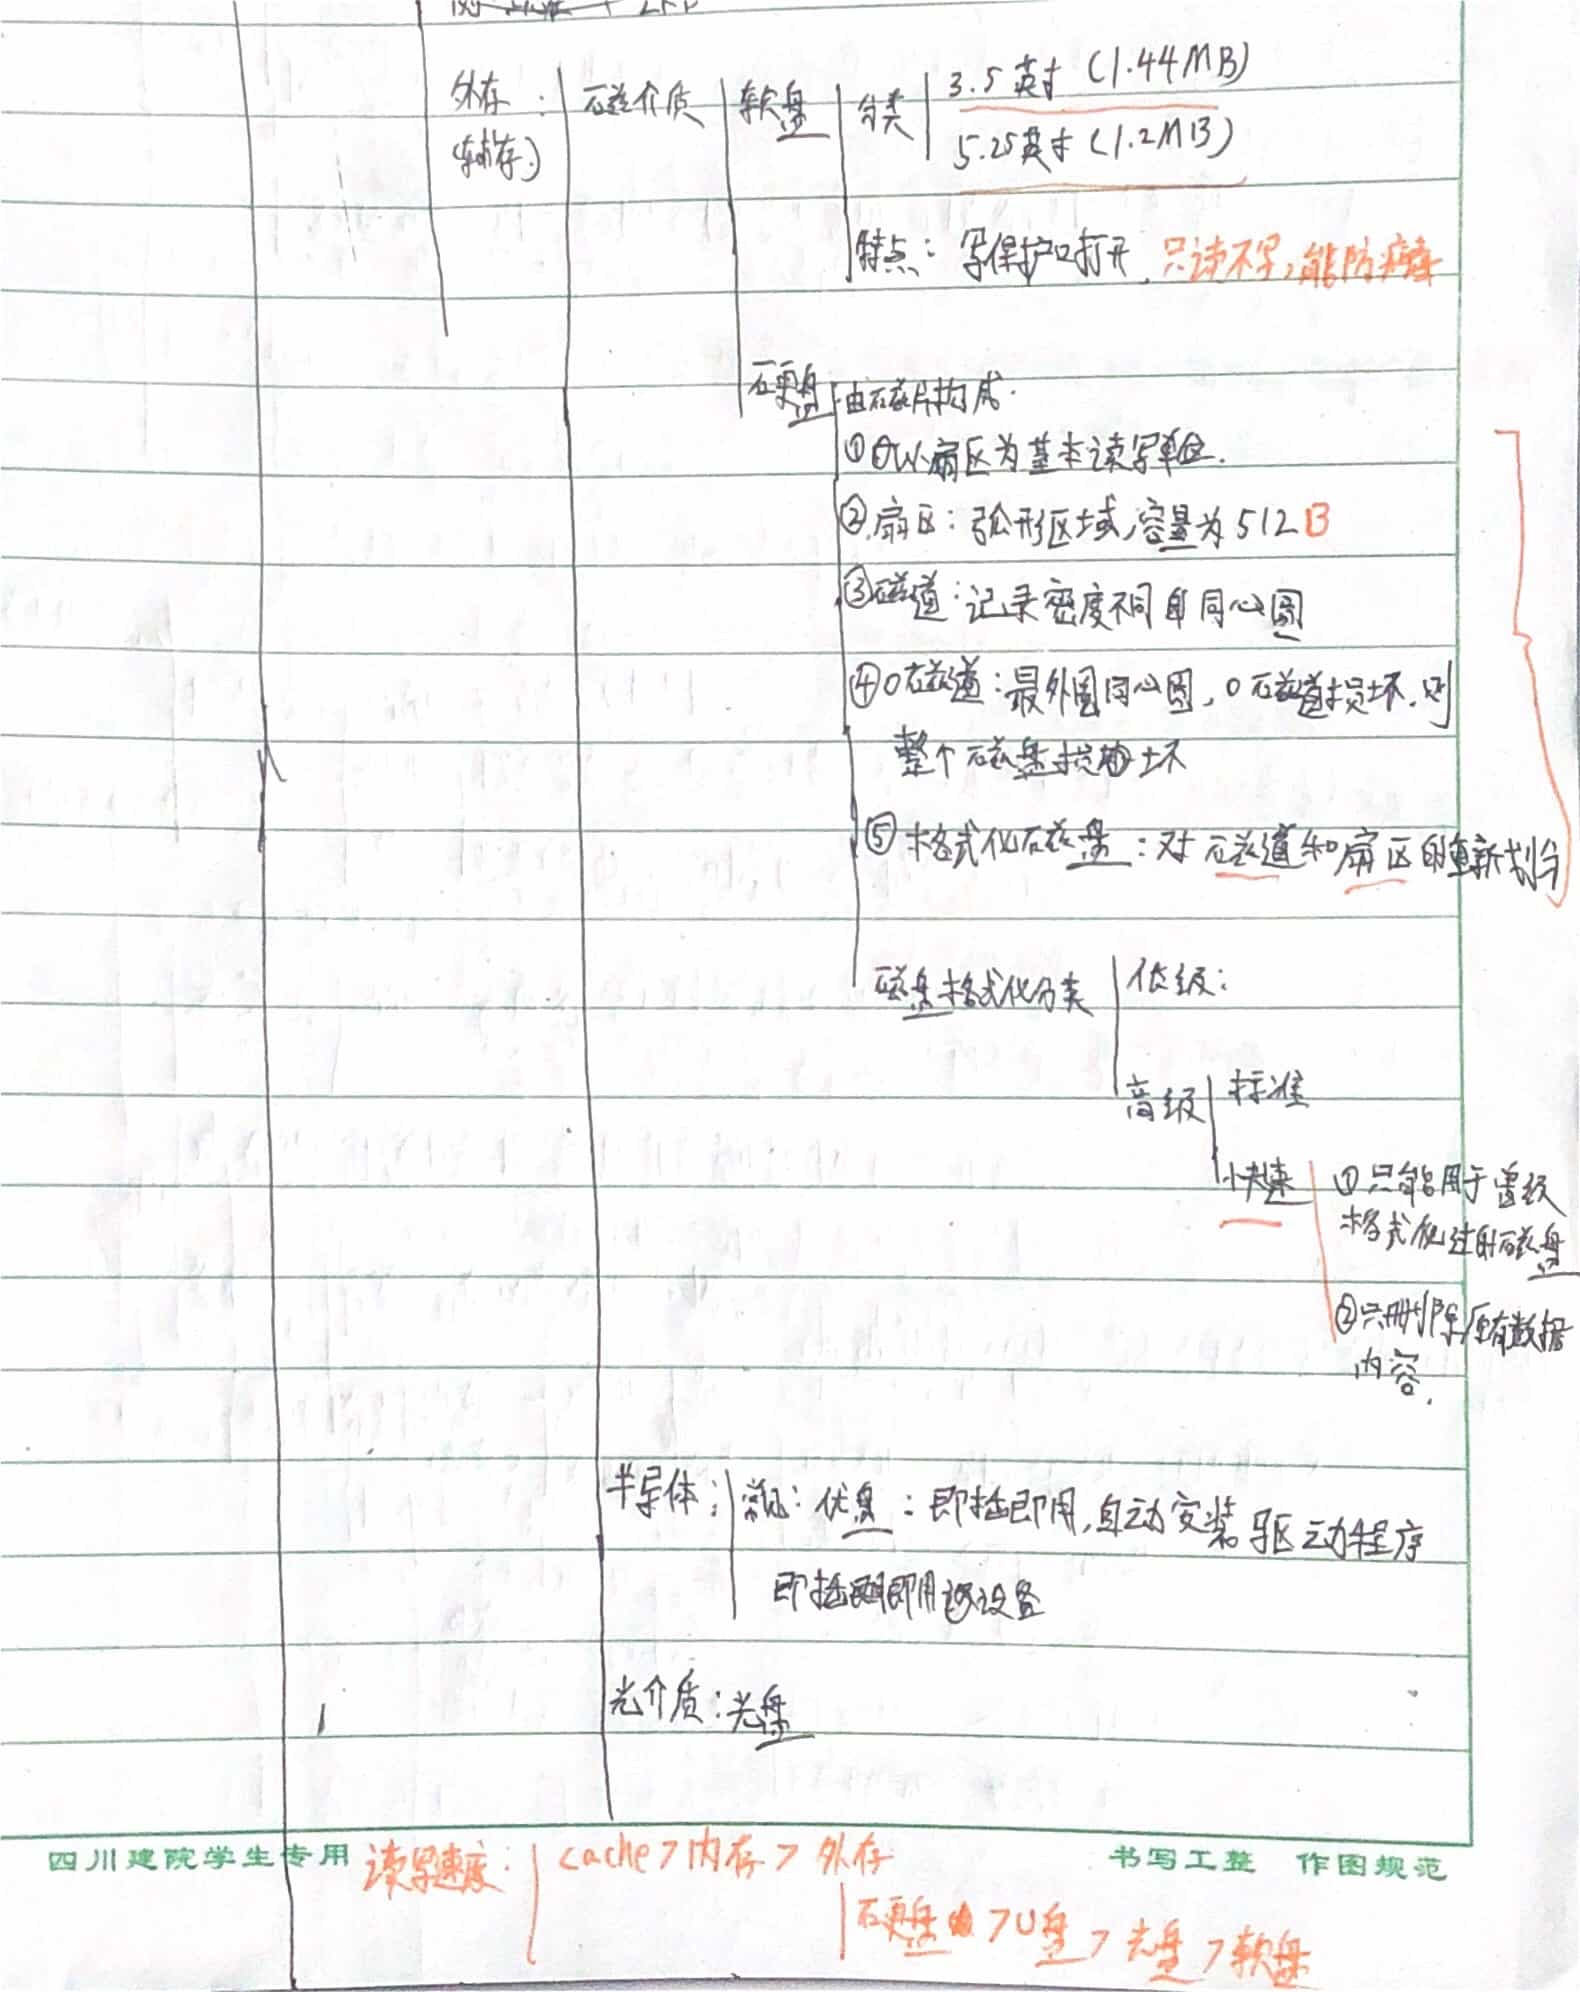 外存: 磁介质 软盘 分类 3.5英寸 (1.44MB)
(辅存) 5.25英寸 (1.2MB)
特点: 写保护口打开, 只读不写, 能防病毒
硬盘 由磁片构成.
① 以扇区为基本读写单位.
② 扇区: 弧形区域, 容量为512B
③ 磁道: 记录密度不同的同心圆
④ 0磁道: 最外圈同心圆, 0磁道损坏, 则
整个磁盘损坏
⑤ 格式化磁盘: 对磁道和扇区的重新划分
磁盘格式化分类 低级:
高级 标准
快速 ① 只能用于曾经
格式化过的磁盘
② 只删除原有数据
内容.
半导体: 常见: 优盘: 即插即用, 自动安装驱动程序
即插即用设备
光介质: 光盘
四川建院学生专用 书写工整 作图规范
读写速度: cache > 内存 > 外存
硬盘 > U盘 > 光盘 > 软盘